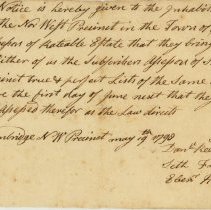 Notice is hereby given to the Inhabit
the Nor West Precinct in the Town of
of Rateable Estate that they bring
either of us the Subscribers
true & perfect Lists of the Same
the first day of June next that the
therefor as the Law directs
N W Precinct may 19th 1798
Seth
Eben